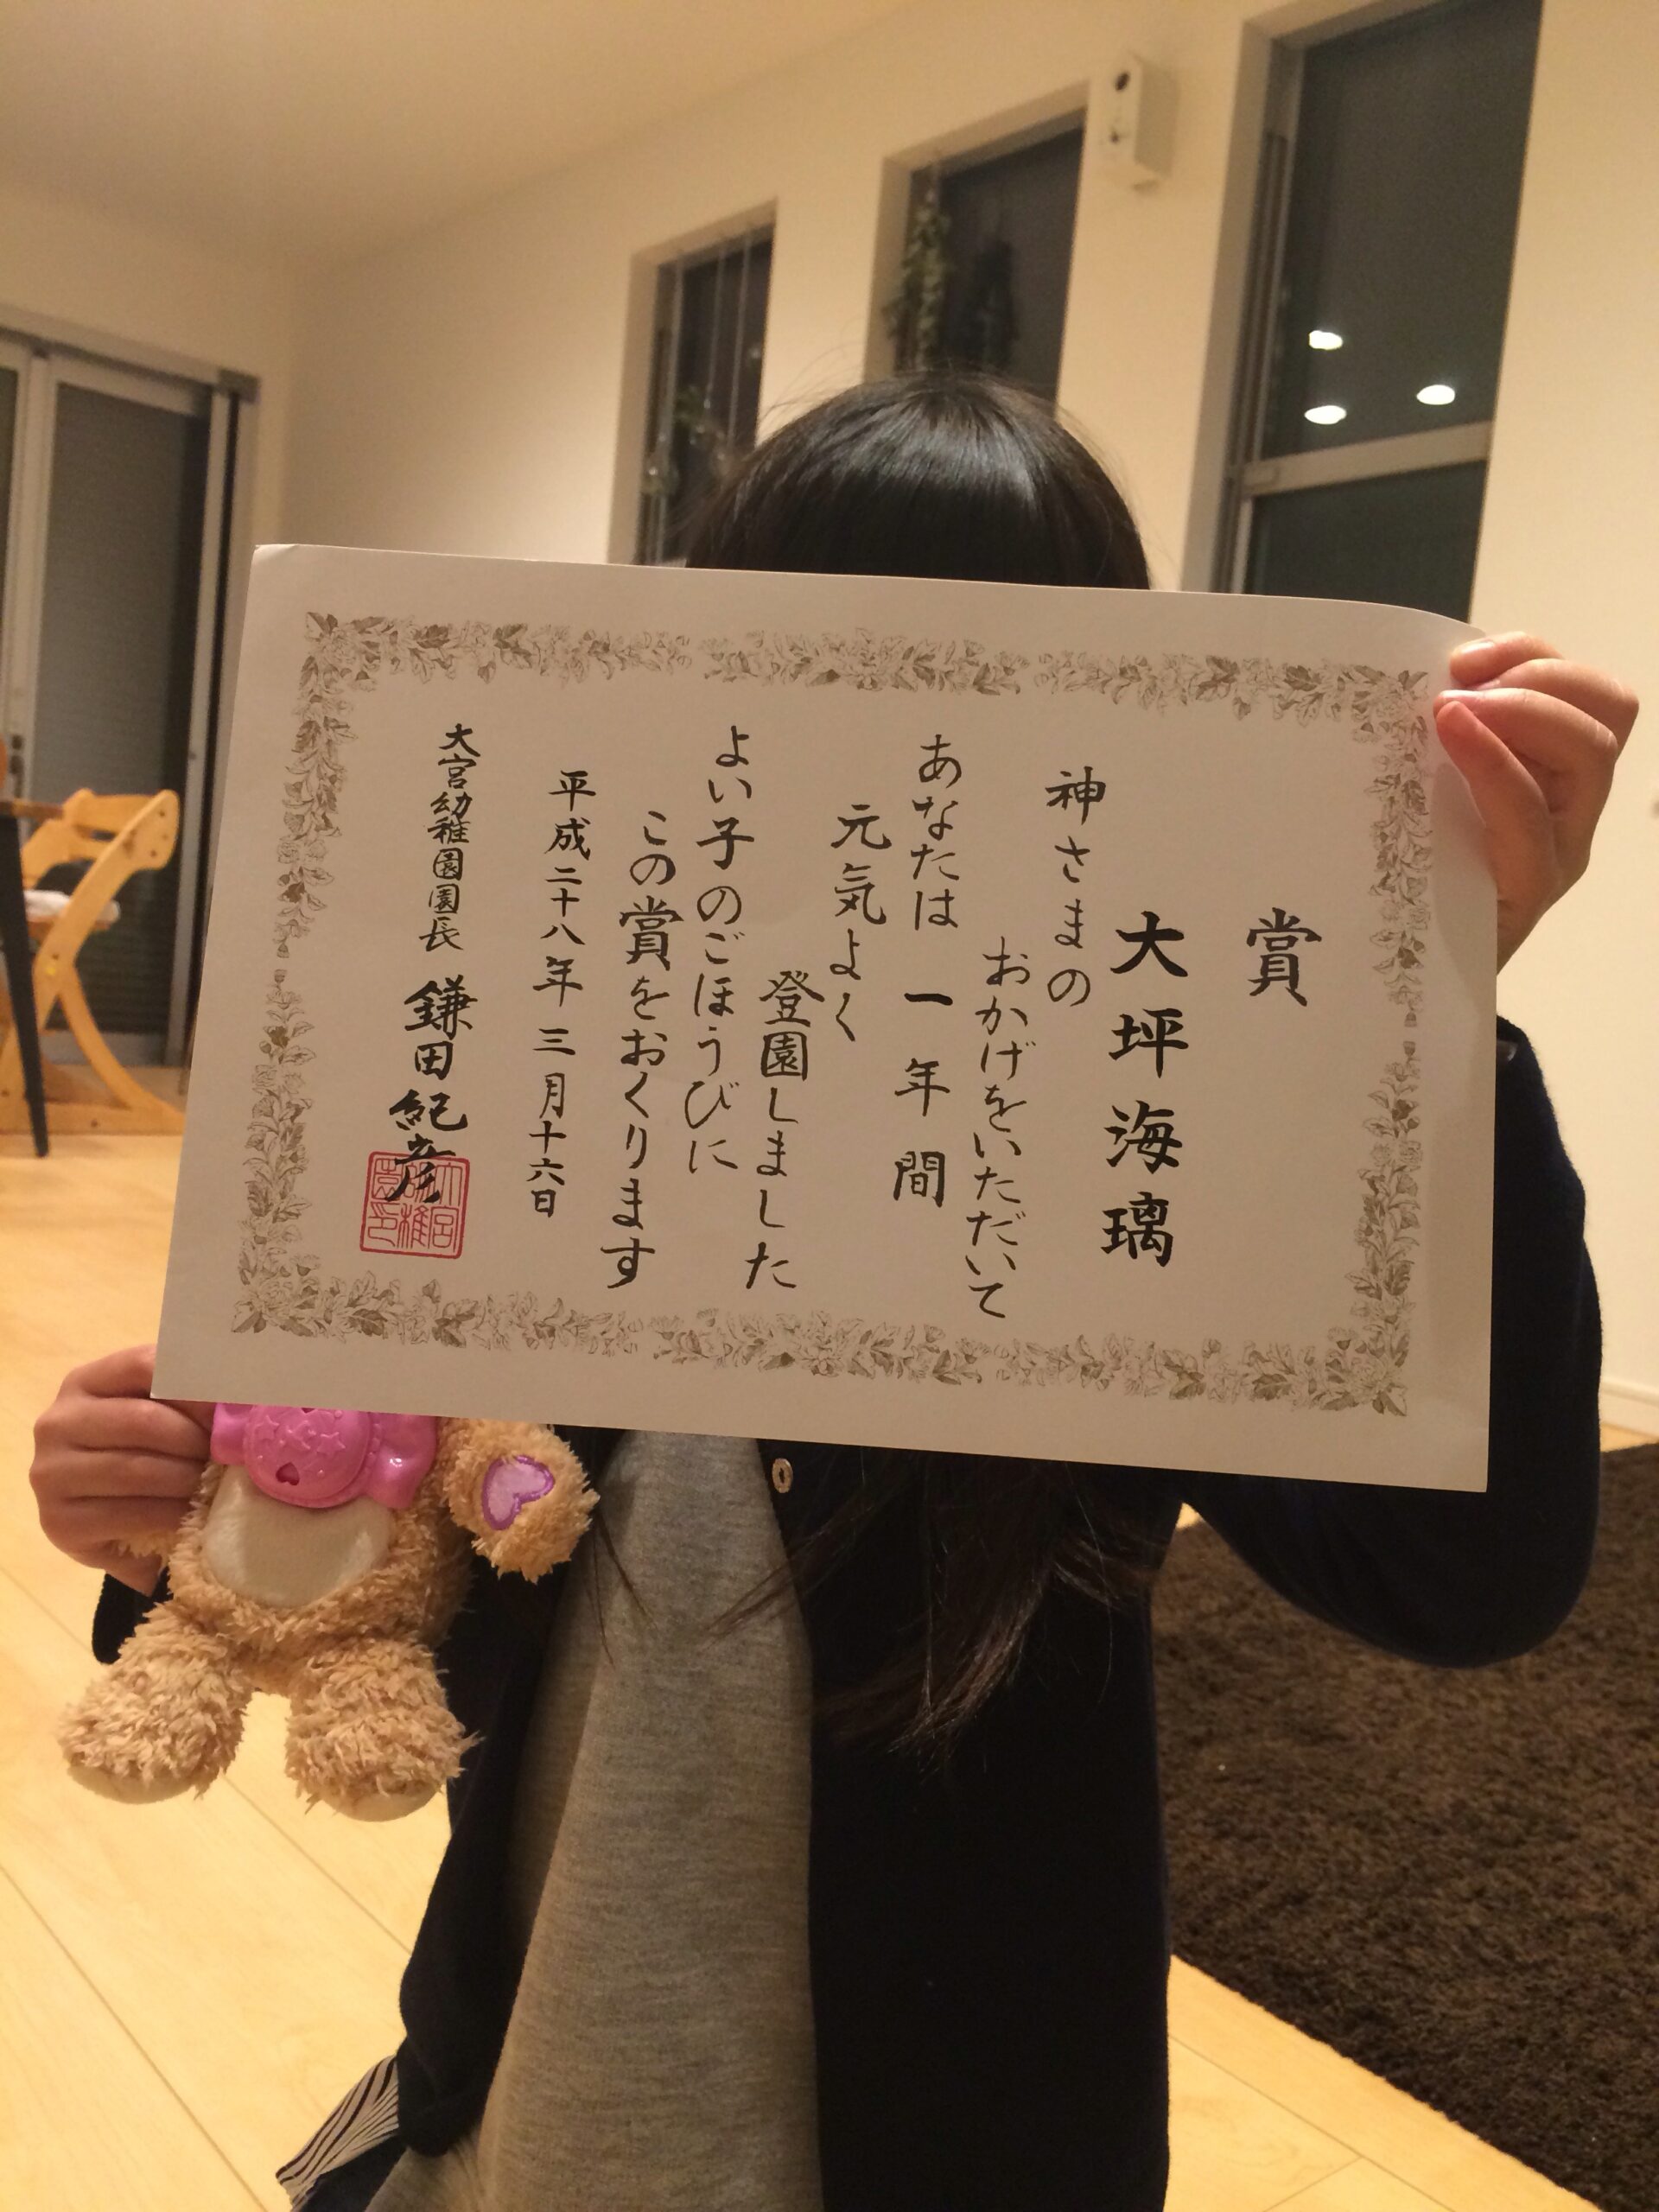 賞
大坪海璃
神さまの
おかげをいただいて
あなたは一年間
元気よく
登園しました
よい子のごほうびに
この賞をおくります
平成二十八年三月十六日
大宮幼稚園園長 鎌田紀彦
大宮
幼稚
園印